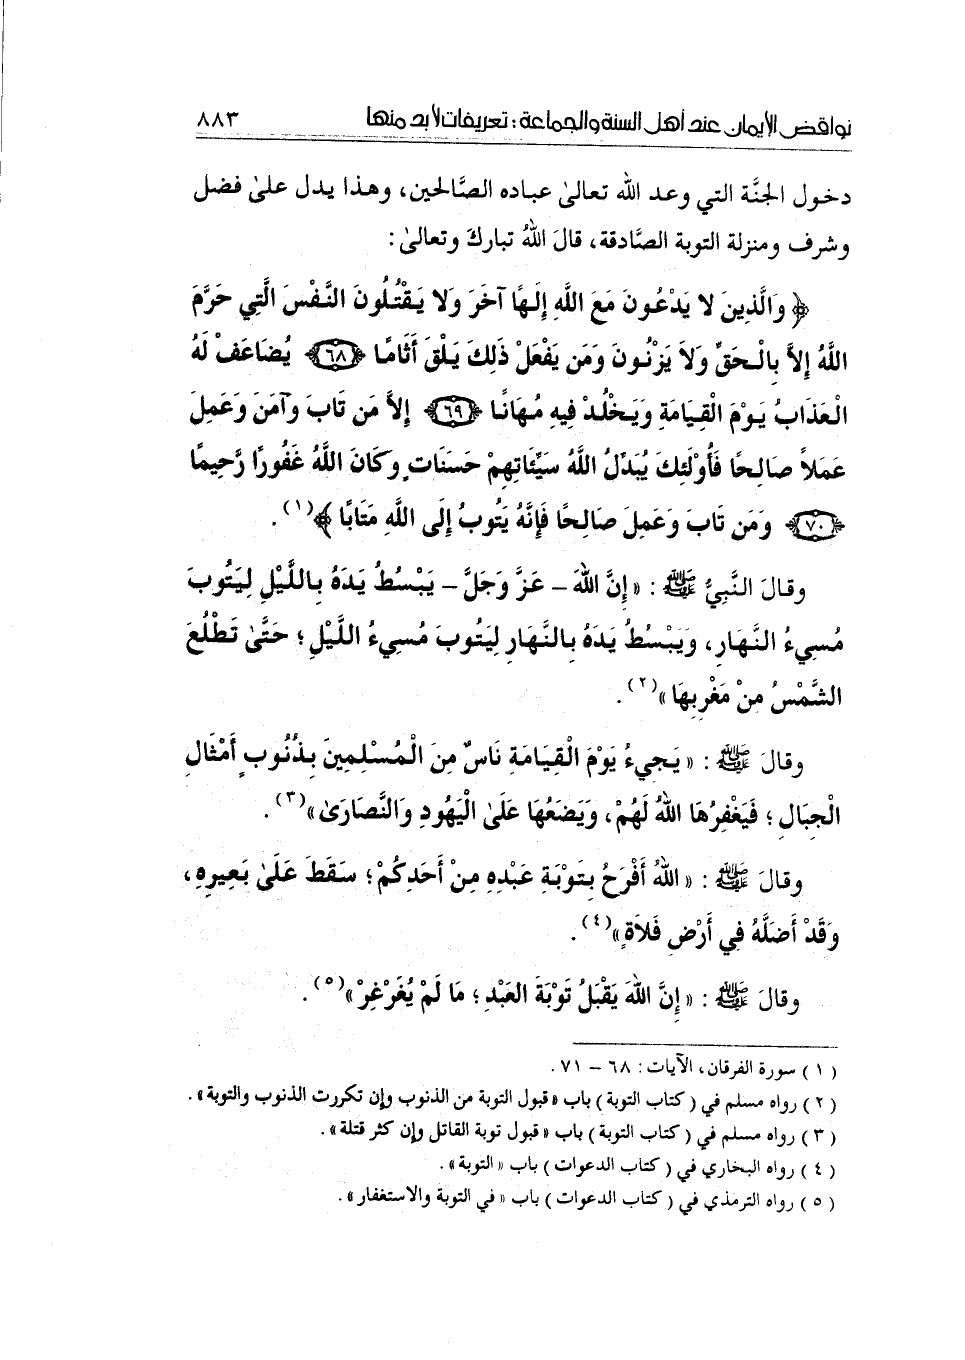 نواقض الأيمان عند أهل السنة والجماعة : تعريفات لأبد منها ٨٨٣
دخول الجنَّة التي وعد الله تعالىٰ عباده الصَّالحين، وهذا يدل علىٰ فضل
وشرف ومنزلة التوبة الصَّادقة، قالَ اللهُ تباركَ وتعالىٰ :
﴿ وَالَّذِينَ لا يَدْعُونَ مَعَ اللَّهِ إِلَهًا آخَرَ وَلا يَقْتُلُونَ النَّفْسَ الَّتِي حَرَّمَ
اللَّهُ إِلاَّ بِالْحَقِّ وَلاَ يَزْنُونَ وَمَن يَفْعَلْ ذَلِكَ يَلْقَ أَثَامًا ﴿٦٨﴾ يُضَاعَفْ لَهُ
الْعَذَابُ يَوْمَ الْقِيَامَةِ وَيَخْلُدْ فِيهِ مُهَانًا ﴿٦٩﴾ إِلاَّ مَن تَابَ وَآمَنَ وَعَمِلَ
عَمَلاً صَالِحًا فَأُوْلَئِكَ يُبَدِّلُ اللَّهُ سَيِّئَاتِهِمْ حَسَنَاتٍ وَكَانَ اللَّهُ غَفُورًا رَّحِيمًا
﴿٧٠﴾ وَمَن تَابَ وَعَمِلَ صَالِحًا فَإِنَّهُ يَتُوبُ إِلَى اللَّهِ مَتَابًا ﴾(١) .
وقالَ النَّبِيُّ ﷺ : « إِنَّ اللهَ – عَزَّ وَجَلَّ – يَبْسُطُ يَدَهُ بِاللَّيْلِ لِيَتُوبَ
مُسِيءُ النَّهَارِ، وَيَبْسُطُ يَدَهُ بِالنَّهَارِ لِيَتُوبَ مُسِيءُ اللَّيْلِ ؛ حَتَّىٰ تَطْلُعَ
الشَّمْسُ مِنْ مَغْرِبِهَا »(٢) .
وقالَ ﷺ : « يَجِيءُ يَوْمَ الْقِيَامَةِ نَاسٌ مِنَ الْمُسْلِمِينَ بِذُنُوبٍ أَمْثَالِ
الْجِبَالِ ؛ فَيَغْفِرُهَا اللهُ لَهُمْ، وَيَضَعُهَا عَلَىٰ الْيَهُودِ وَالنَّصَارَىٰ »(٣) .
وقالَ ﷺ : « اللهُ أَفْرَحُ بِتَوْبَةِ عَبْدِهِ مِنْ أَحَدِكُمْ ؛ سَقَطَ عَلَىٰ بَعِيرِهِ،
وَقَدْ أَضَلَّهُ فِي أَرْضِ فَلاَةٍ »(٤) .
وقالَ ﷺ : « إِنَّ اللهَ يَقْبَلُ تَوْبَةَ العَبْدِ ؛ مَا لَمْ يُغَرْغِرْ »(٥) .
( ١ ) سورة الفرقان، الآيات : ٦٨ – ٧١ .
( ٢ ) رواه مسلم في ( كتاب التوبة ) باب « قبول التوبة من الذنوب وإن تكررت الذنوب والتوبة » .
( ٣ ) رواه مسلم في ( كتاب التوبة ) باب « قبول توبة القاتل وإن كثر قتلة » .
( ٤ ) رواه البخاري في ( كتاب الدعوات ) باب « التوبة » .
( ٥ ) رواه الترمذي في ( كتاب الدعوات ) باب « في التوبة والاستغفار » .